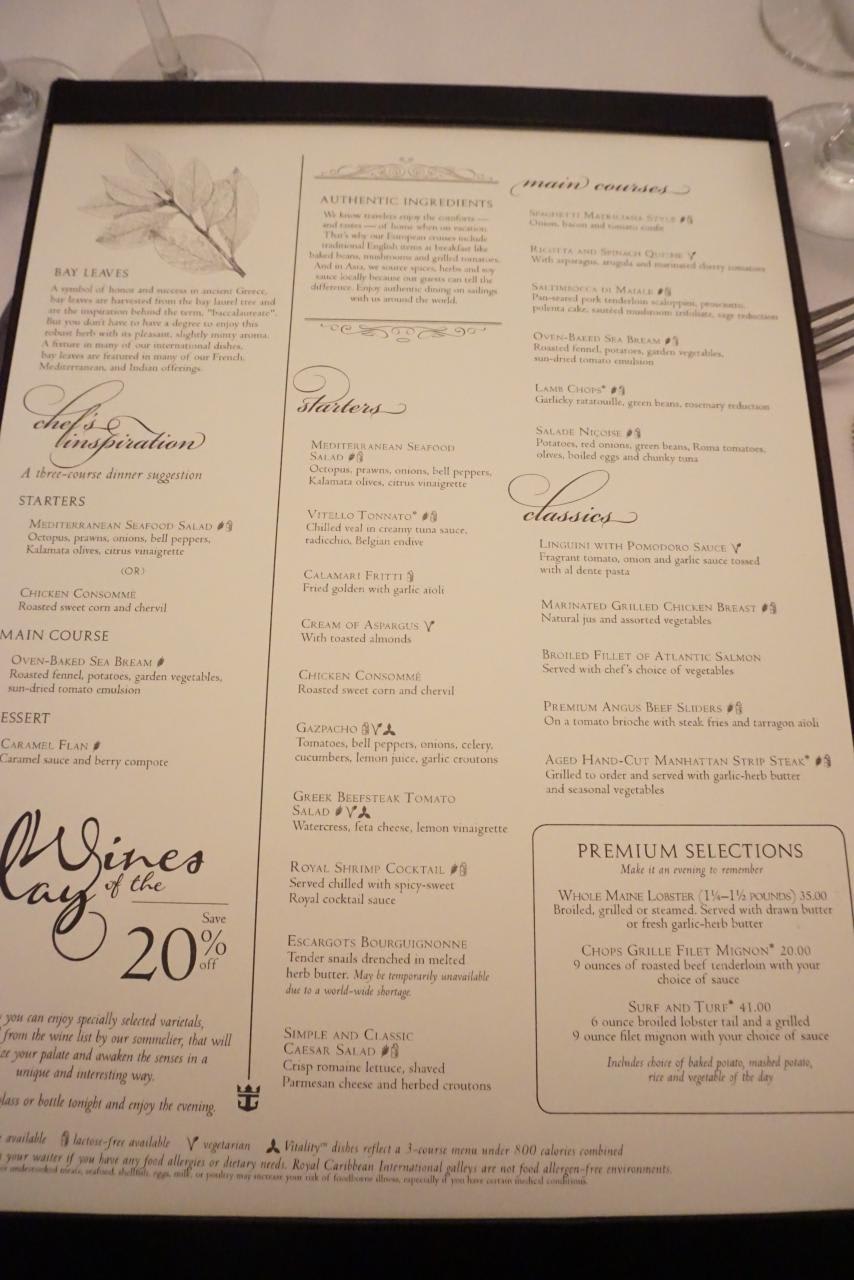 BAY LEAVES
A symbol of honor and success in ancient Greece,
bay leaves are harvested from the bay laurel tree and
are the inspiration behind the term, "baccalaureate".
But you don't have to have a degree to enjoy this
robust herb with its pleasant, slightly minty aroma.
A fixture in many of our international dishes,
bay leaves are featured in many of our French,
Mediterranean, and Indian offerings.
chef's
inspiration
A three-course dinner suggestion
STARTERS
MEDITERRANEAN SEAFOOD SALAD
Octopus, prawns, onions, bell peppers,
Kalamata olives, citrus vinaigrette
(OR)
CHICKEN CONSOMMÉ
Roasted sweet corn and chervil
MAIN COURSE
OVEN-BAKED SEA BREAM
Roasted fennel, potatoes, garden vegetables,
sun-dried tomato emulsion
ESSERT
CARAMEL FLAN
Caramel sauce and berry compote
Wines
of the
ay
Save
20%
off
you can enjoy specially selected varietals,
from the wine list by our sommelier, that will
ze your palate and awaken the senses in a
unique and interesting way.
lass or bottle tonight and enjoy the evening.
AUTHENTIC INGREDIENTS
We know travelers enjoy the comforts —
and tastes — of home when on vacation.
That's why our European cruises include
traditional English items at breakfast like
baked beans, mushrooms and grilled tomatoes.
And in Asia, we source spices, herbs and soy
sauce locally because our guests can tell the
difference. Enjoy authentic dining on sailings
with us around the world.
starters
MEDITERRANEAN SEAFOOD
SALAD
Octopus, prawns, onions, bell peppers,
Kalamata olives, citrus vinaigrette
VITELLO TONNATO*
Chilled veal in creamy tuna sauce,
radicchio, Belgian endive
CALAMARI FRITTI
Fried golden with garlic aioli
CREAM OF ASPARGUS
With toasted almonds
CHICKEN CONSOMMÉ
Roasted sweet corn and chervil
GAZPACHO
Tomatoes, bell peppers, onions, celery,
cucumbers, lemon juice, garlic croutons
GREEK BEEFSTEAK TOMATO
SALAD
Watercress, feta cheese, lemon vinaigrette
ROYAL SHRIMP COCKTAIL
Served chilled with spicy-sweet
Royal cocktail sauce
ESCARGOTS BOURGUIGNONNE
Tender snails drenched in melted
herb butter. May be temporarily unavailable
due to a world-wide shortage.
SIMPLE AND CLASSIC
CAESAR SALAD
Crisp romaine lettuce, shaved
Parmesan cheese and herbed croutons
main courses
SPAGHETTI MATRICIANA STYLE
Onion, bacon and tomato confit
RICOTTA AND SPINACH QUICHE
With asparagus, arugula and marinated cherry tomatoes
SALTIMBOCCA DI MAIALE
Pan-seared pork tenderloin scaloppini, prosciutto,
polenta cake, sautéed mushroom trifolate, sage reduction
OVEN-BAKED SEA BREAM
Roasted fennel, potatoes, garden vegetables,
sun-dried tomato emulsion
LAMB CHOPS*
Garlicky ratatouille, green beans, rosemary reduction
SALADE NIÇOISE
Potatoes, red onions, green beans, Roma tomatoes,
olives, boiled eggs and chunky tuna
classics
LINGUINI WITH POMODORO SAUCE
Fragrant tomato, onion and garlic sauce tossed
with al dente pasta
MARINATED GRILLED CHICKEN BREAST
Natural jus and assorted vegetables
BROILED FILLET OF ATLANTIC SALMON
Served with chef's choice of vegetables
PREMIUM ANGUS BEEF SLIDERS
On a tomato brioche with steak fries and tarragon aioli
AGED HAND-CUT MANHATTAN STRIP STEAK*
Grilled to order and served with garlic-herb butter
and seasonal vegetables
PREMIUM SELECTIONS
Make it an evening to remember
WHOLE MAINE LOBSTER (1¼–1½ POUNDS) 35.00
Broiled, grilled or steamed. Served with drawn butter
or fresh garlic-herb butter
CHOPS GRILLE FILET MIGNON* 20.00
9 ounces of roasted beef tenderloin with your
choice of sauce
SURF AND TURF* 41.00
6 ounce broiled lobster tail and a grilled
9 ounce filet mignon with your choice of sauce
Includes choice of baked potato, mashed potato,
rice and vegetable of the day
available lactose-free available vegetarian Vitality™ dishes reflect a 3-course menu under 800 calories combined
your waiter if you have any food allergies or dietary needs. Royal Caribbean International galleys are not food allergen-free environments.
or undercooked meats, seafood, shellfish, eggs, milk, or poultry may increase your risk of foodborne illness, especially if you have certain medical conditions.